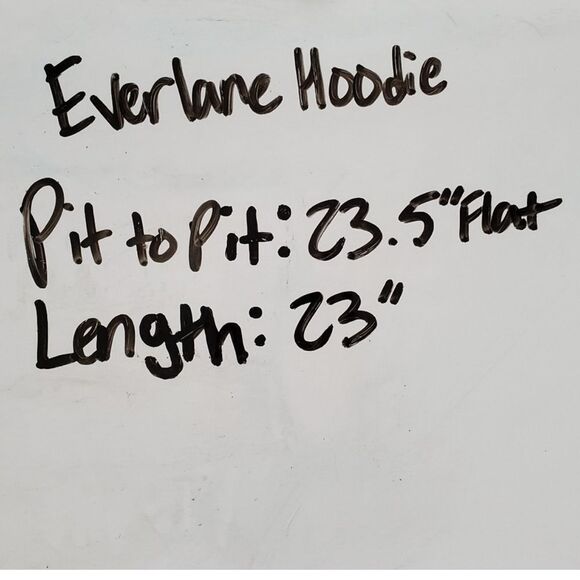 Everlane Hoodie
Pit to Pit: 23.5" Flat
Length: 23"